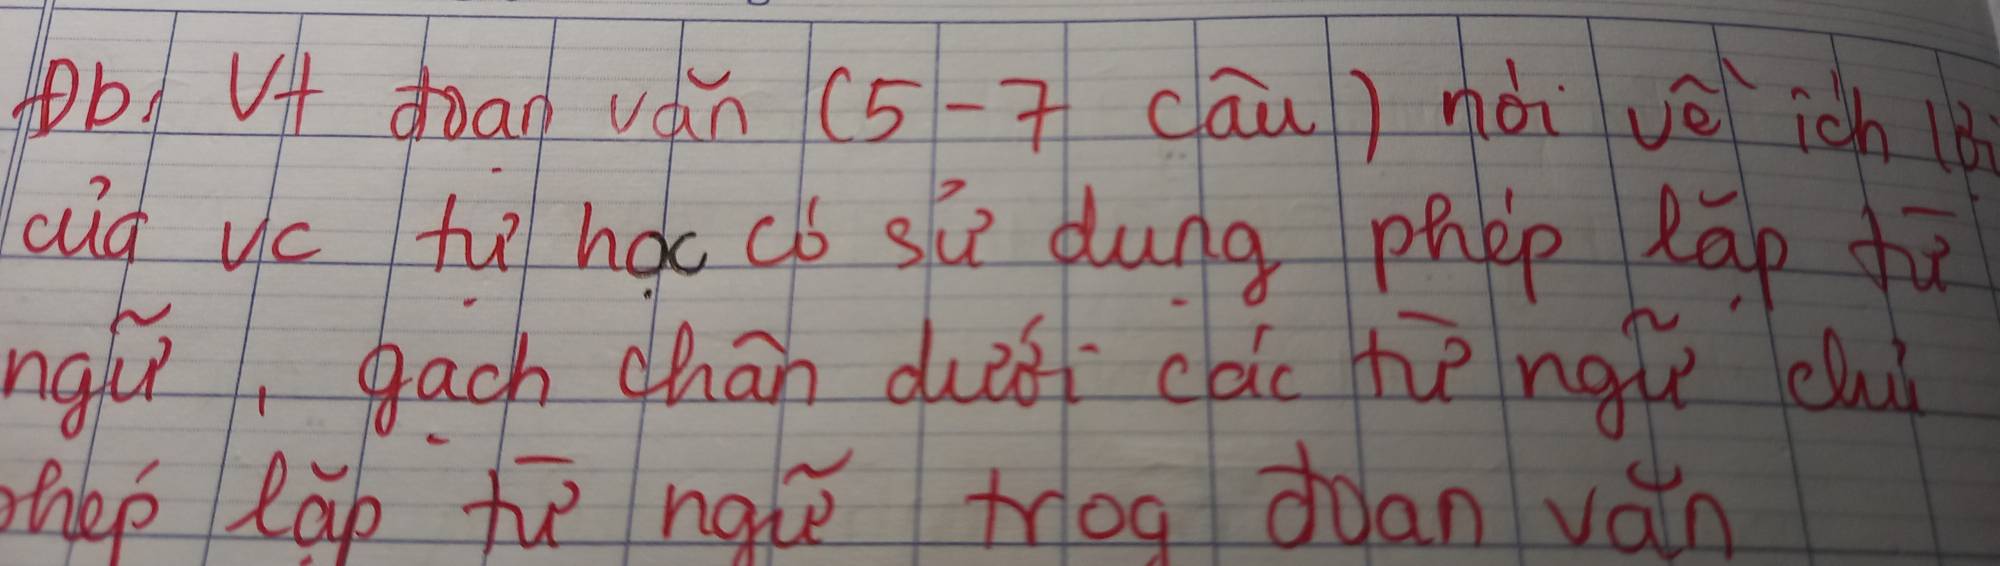 Đb: Vt đoạn văn (5-7 câu) nói về ích lợi
của vc tự học có sử dụng phép lặp từ
ngữ, gạch chân dưới các từ ngữ chỉ
phép lặp từ ngữ trog đoạn văn